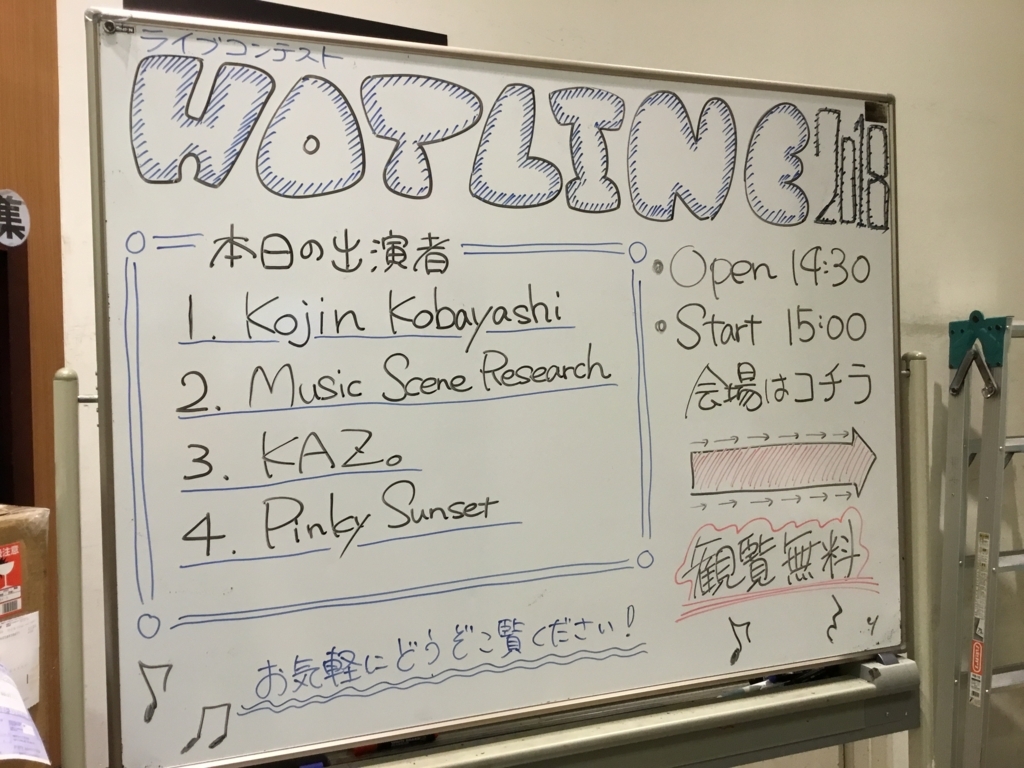 ライブコンテスト
HOTLINE 2018
本日の出演者
1. Kojin Kobayashi
2. Music Scene Research
3. KAZ。
4. Pinky Sunset
・Open 14:30
・Start 15:00
会場はコチラ
→ → → → → →
→ → → → → →
観覧無料
お気軽にどうぞご覧ください!
集
注意